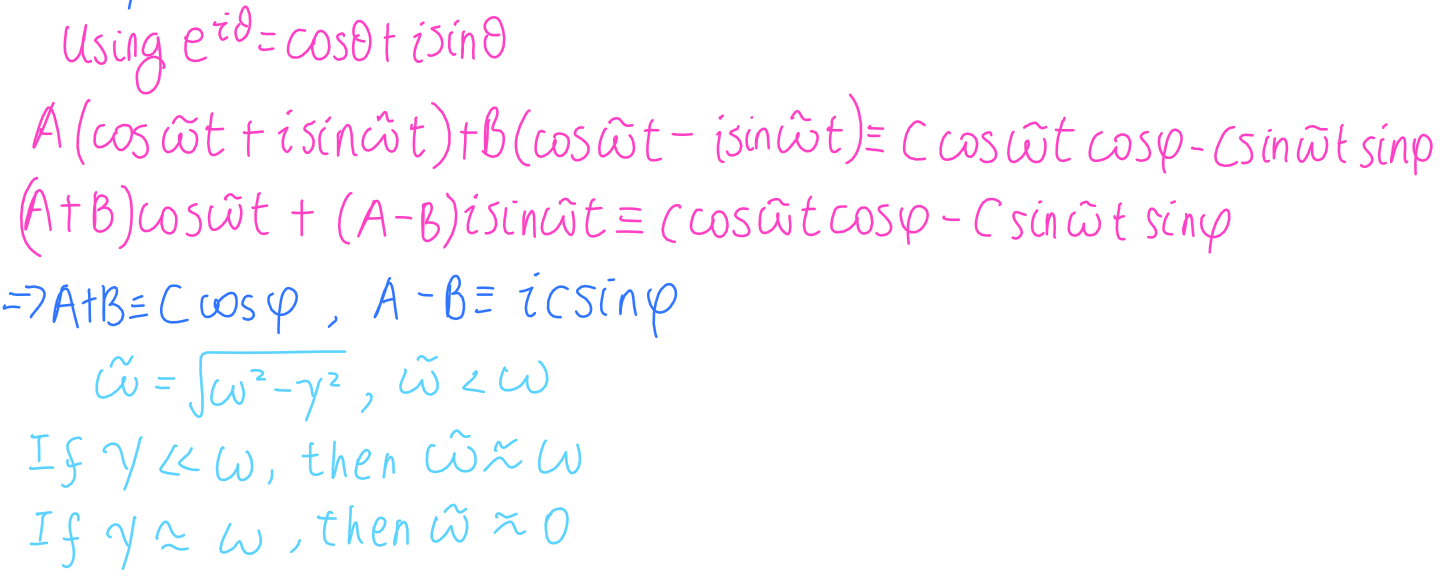 Using e^{iθ} = cosθ + isinθ
A(cosω̃t + isinω̃t) + B(cosω̃t - isinω̃t) ≡ Ccosω̃t cosφ - Csinω̃t sinφ
(A+B)cosω̃t + (A-B)isinω̃t ≡ Ccosω̃t cosφ - Csinω̃t sinφ
=> A+B ≡ Ccosφ , A-B ≡ iCsinφ
ω̃ = √(ω² - γ²) , ω̃ < ω
If γ << ω, then ω̃ ≈ ω
If γ ≈ ω, then ω̃ ≈ 0